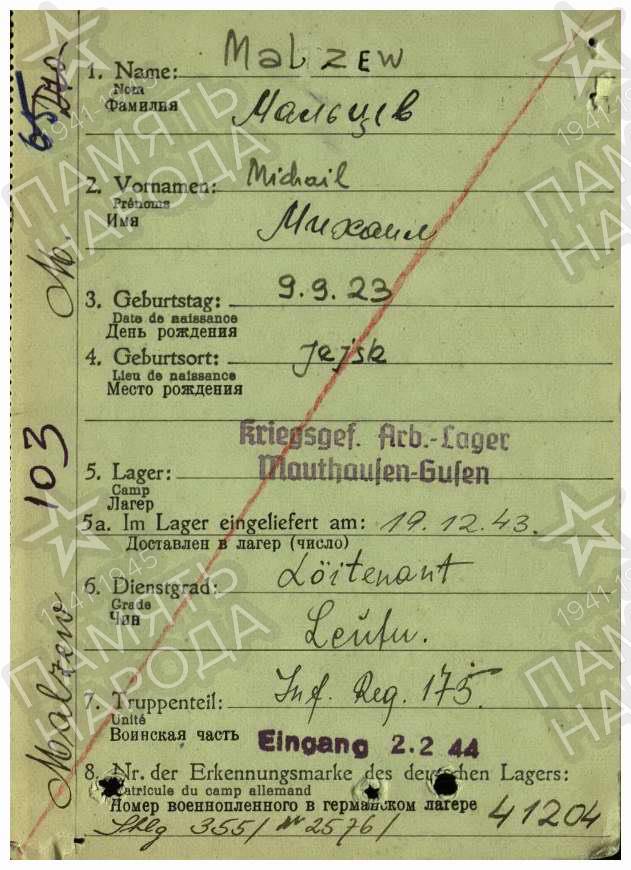 Malzew
1. Name:
Nom
Фамилия
Мальцев
2. Vornamen: Michail
Prénoms
Имя
Михаил
3. Geburtstag: 9.9.23
Date de naissance
День рождения
4. Geburtsort: Jejsk
Lieu de naissance
Место рождения
Kriegsgef. Arb.-Lager
Mauthausen-Gusen
5. Lager:
Camp
Лагерь
5a. Im Lager eingeliefert am: 19.12.43.
Доставлен в лагер (число)
6. Dienstgrad: Löitenant
Grade
Чин
Leutn.
7. Truppenteil: Inf. Reg. 175.
Unité
Воинская часть
Eingang 2.2 44
8. Nr. der Erkennungsmarke des deutschen Lagers:
Matricule du camp allemand
Номер военнопленного в германском лагере 41204
Stlg 355/ Nr 2576/
Malzew 103 M.
ПАМЯТЬ
НАРОДА
1941-1945